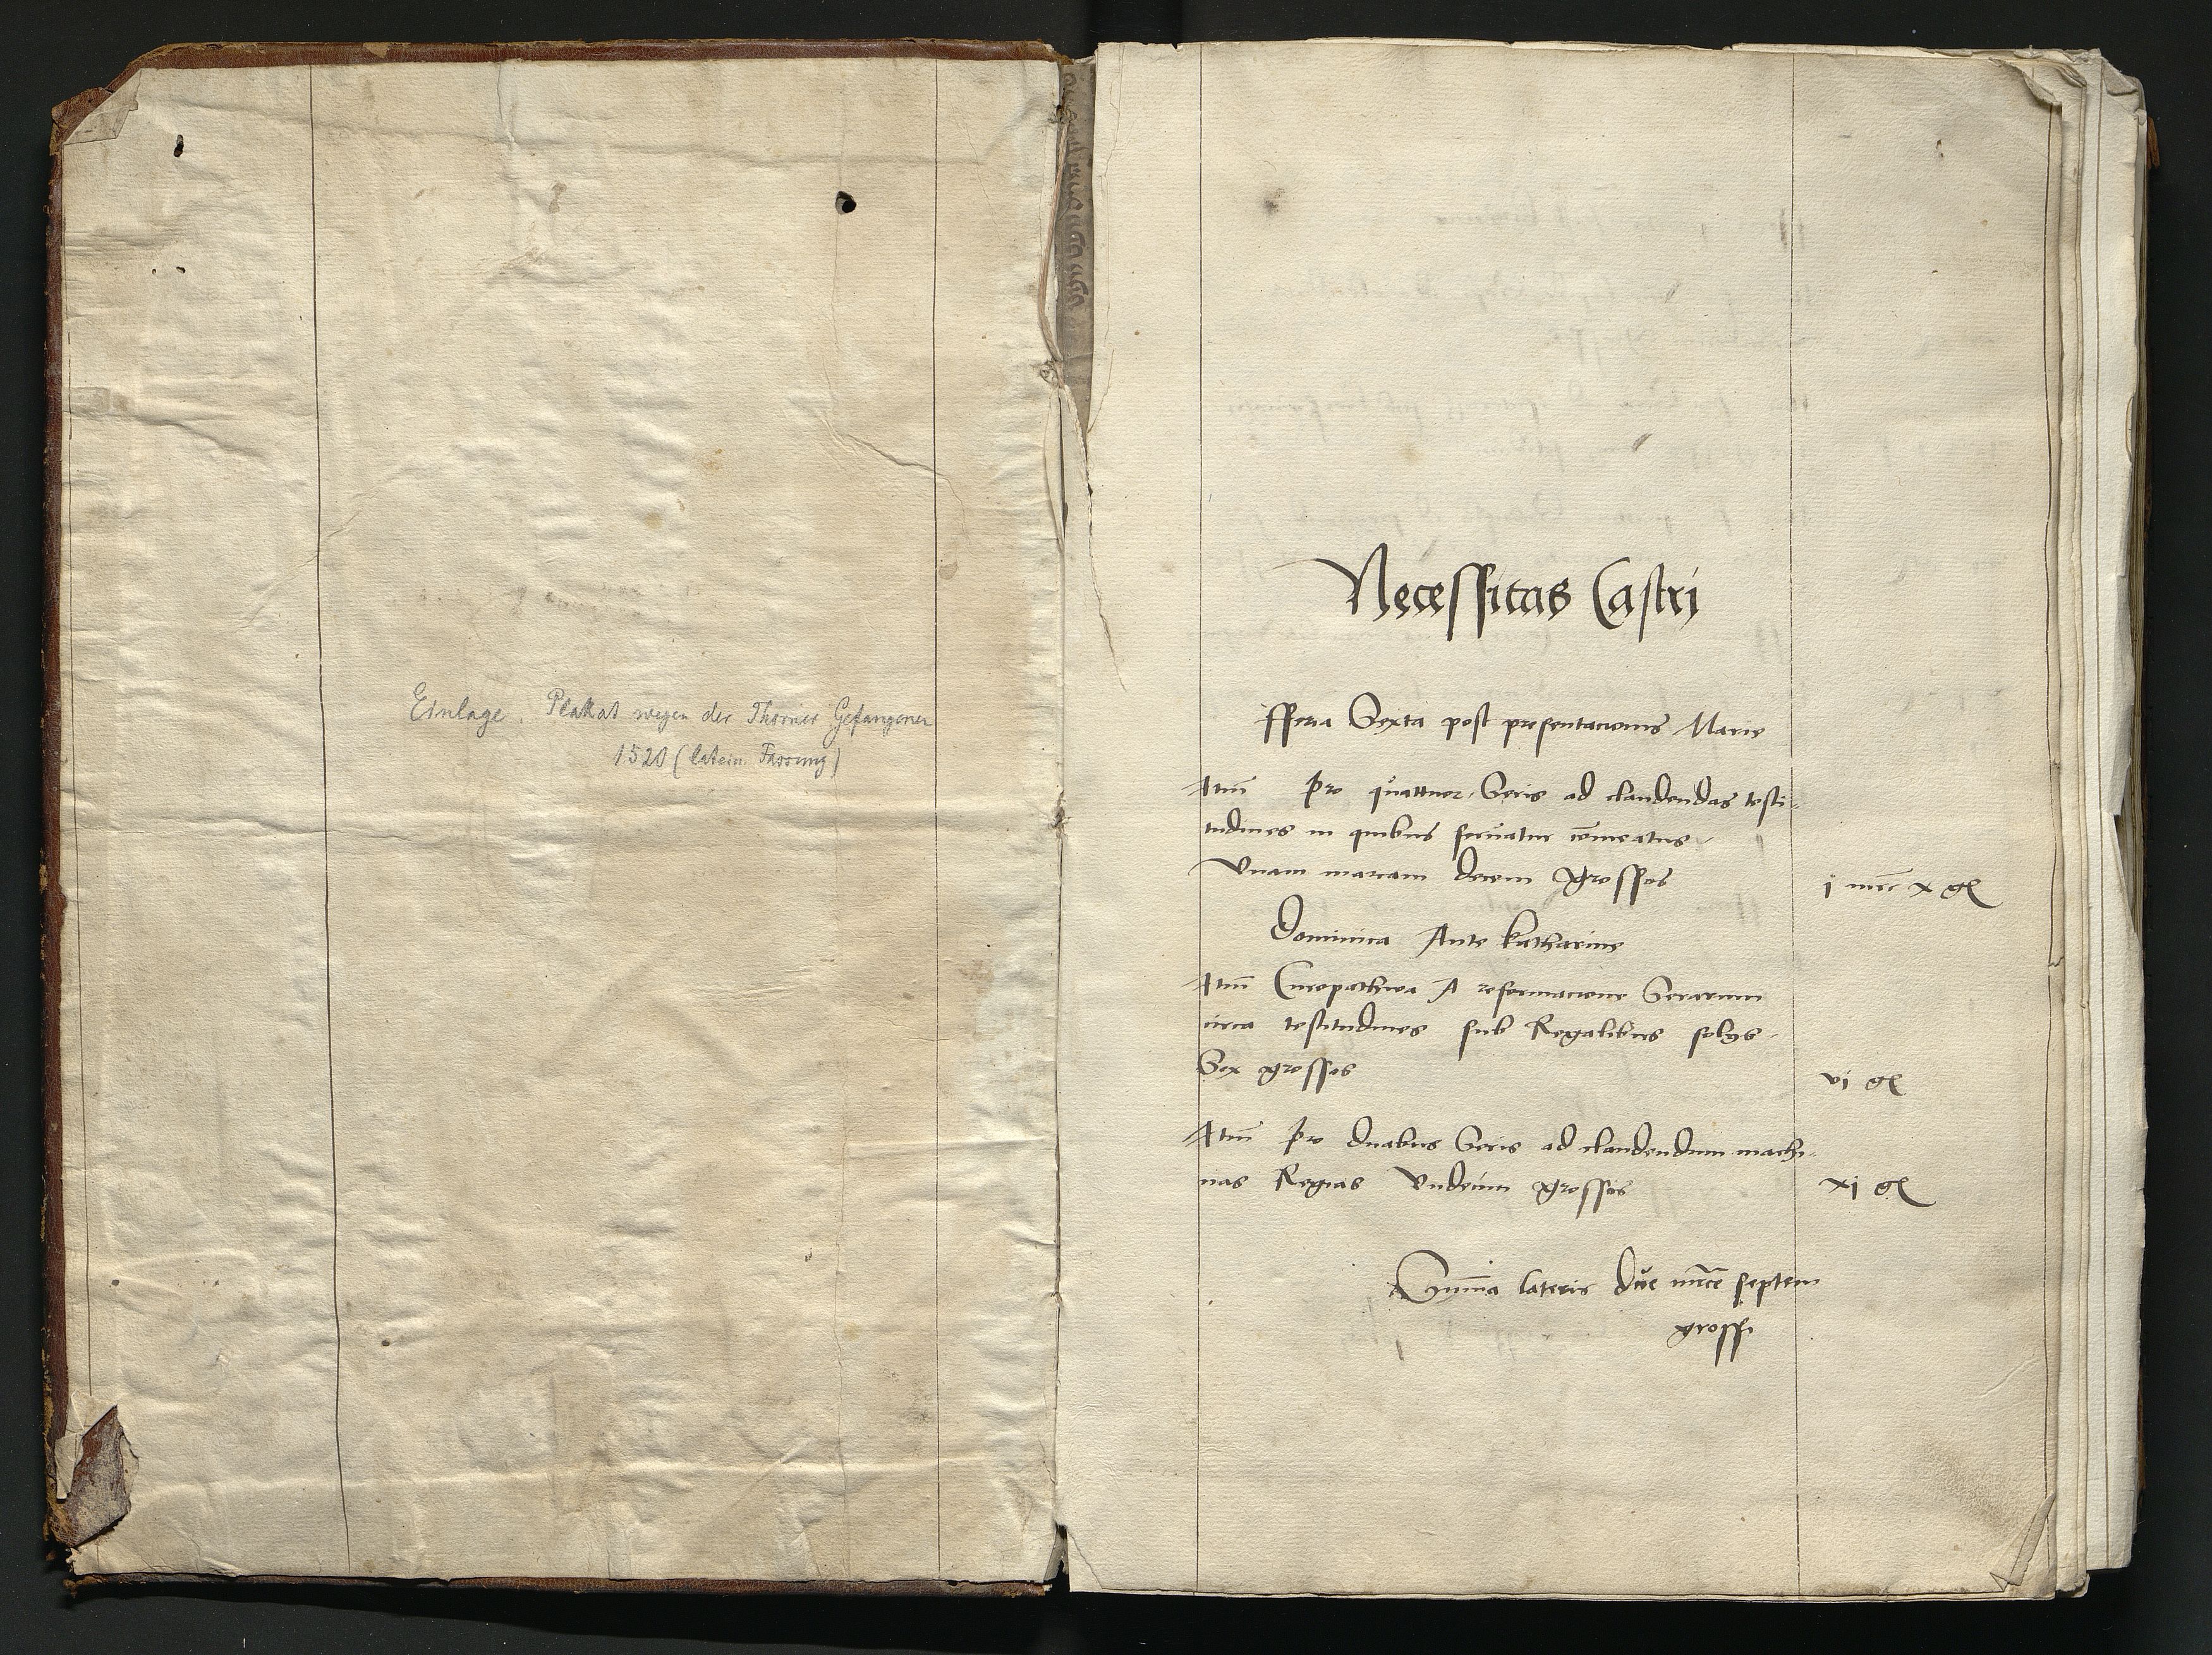 Einlage. Plakat wegen der Thorner Gefangenen
1520 (latein. Fassung)
Necessitas Castri
fferia Sexta post presentacionis Marie
Itm̄ Pro quattuor Seris ad claudendas testi-
tudines in quibus seruatur com̄eatus
Vnam marcam decem grossos
j mrc x gl
Dominica Ante Katharine
Itm̄ A reformacione Serarum
circa testitudines sub Regalibus
Sex grossos
vj gl
Itm̄ Pro duabus Seris ad claudendum machi-
nas Regias Vndecim grossos
xj gl
Sum̄a lateris due mrce septem
grossi